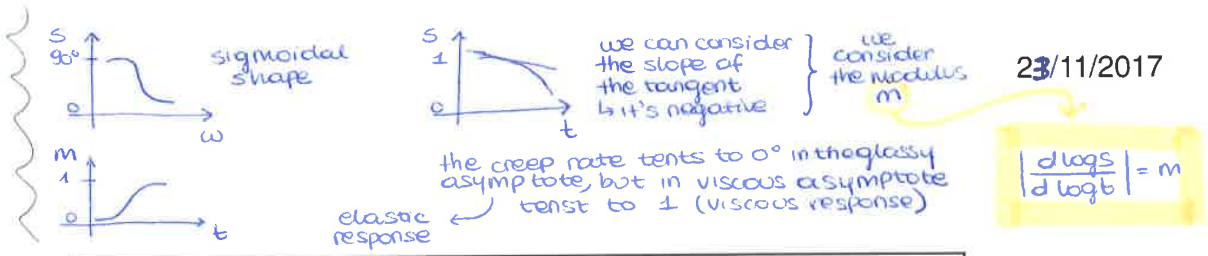 S
90°
0
ω
sigmoidal
shape
S
1
0
t
we can consider
the slope of
the tangent
↳ it's negative
we
consider
the modulus
m
23/11/2017
m
1
0
t
the creep rate tents to 0° in the glassy
asymptote, but in viscous asymptote
tenst to 1 (viscous response)
elastic
response
|d log S / d log t| = m